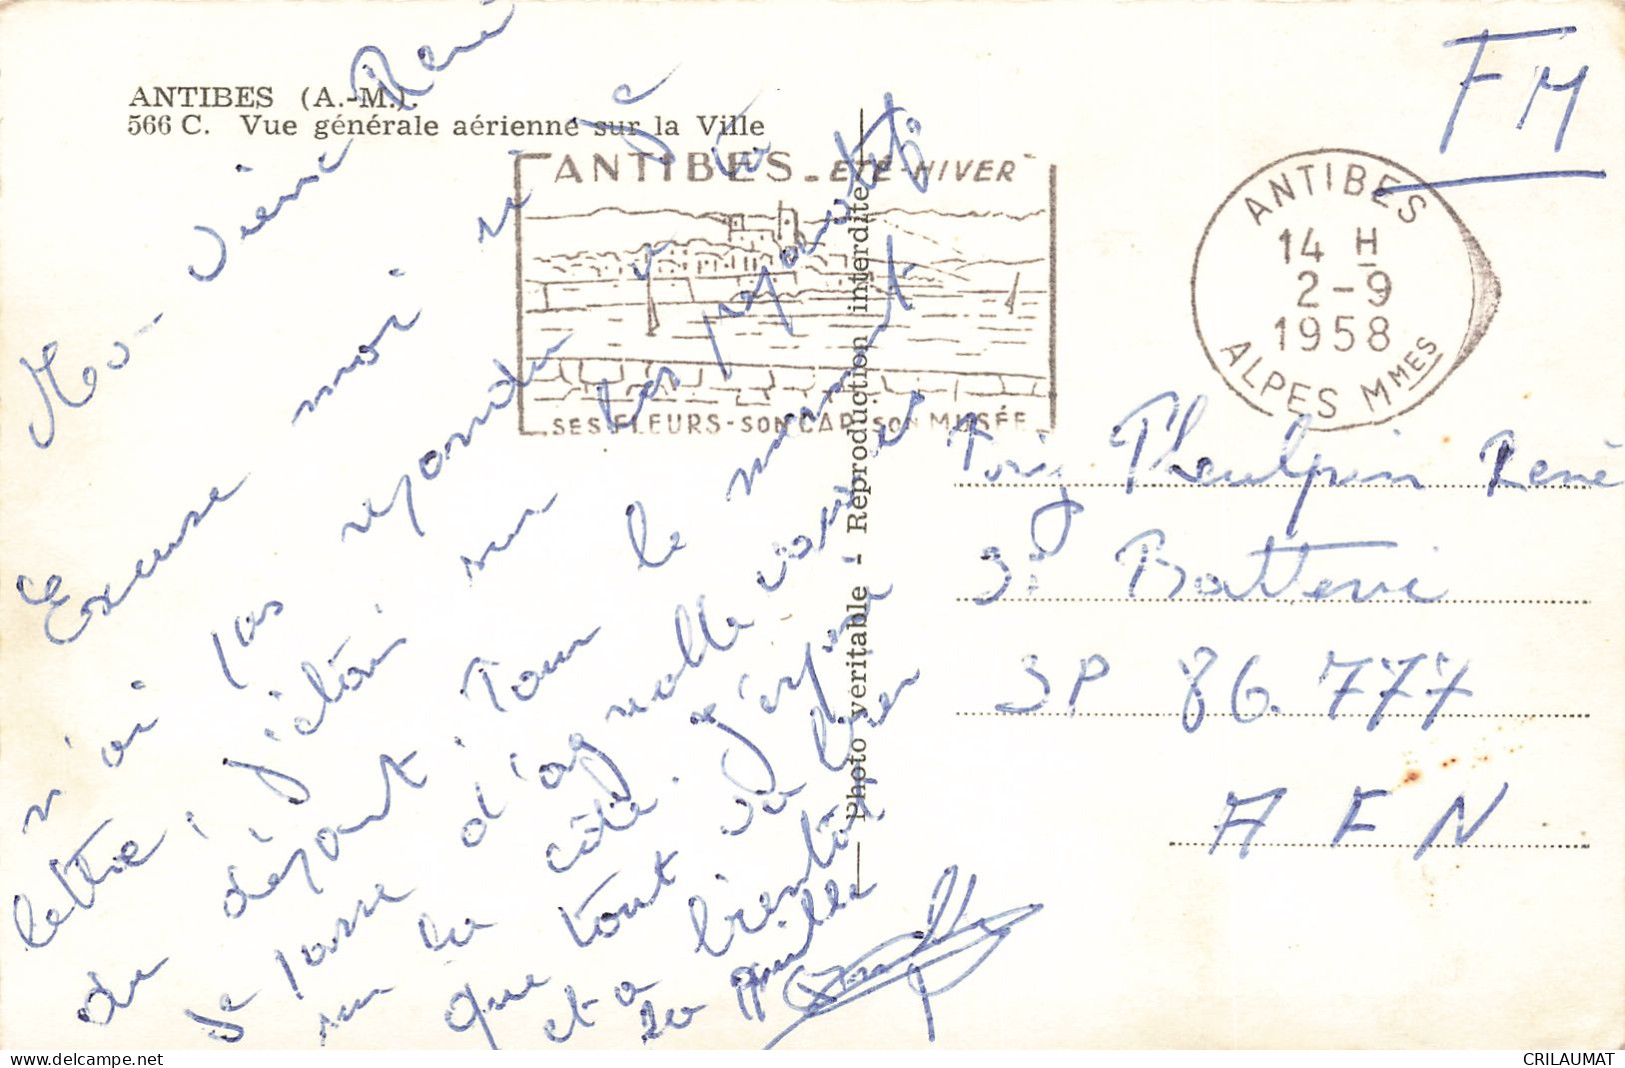 ANTIBES (A.-M.).
566 C. Vue générale aérienne sur la Ville
ANTIBES - ÉTÉ - HIVER
SES FLEURS - SON CAP - SON MUSÉE
ANTIBES
14 H
2-9
1958
ALPES MMES
FM
Photo véritable - Reproduction interdite
Mon Vieux René
Excuse moi si je
n'ai pas répondu a ta
lettre, j'étais sur les
du départ. Pour le moment
Je passe d'agréable
sur la côte. J'espère
que tout va bien
et a bientôt
René
3e Batterie
SP 86.777
AFN
www.delcampe.net
CRILAUMAT